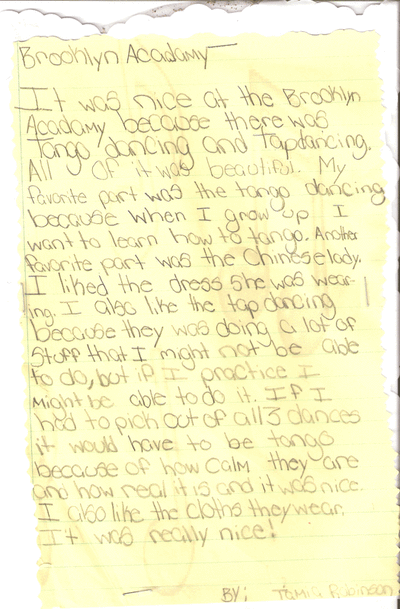 Brooklyn Acadamy
It was nice at the Brooklyn
Acadamy because there was
Tango dancing and Tapdancing.
All of it was beautiful. My
favorite part was the tango dancing
because when I grow up I
want to learn how to tango. Another
favorite part was the Chinese lady.
I liked the dress she was wear-
ing. I also like the tap dancing
because they was doing a lot of
stoff that I might not be able
to do, but if I practice I
might be able to do it. If I
had to pick out of all 3 dances
it would have to be tango
because of how calm they are
and how real it is and it was nice.
I also like the cloths they wear.
It was really nice!
By; Tamia Robinson